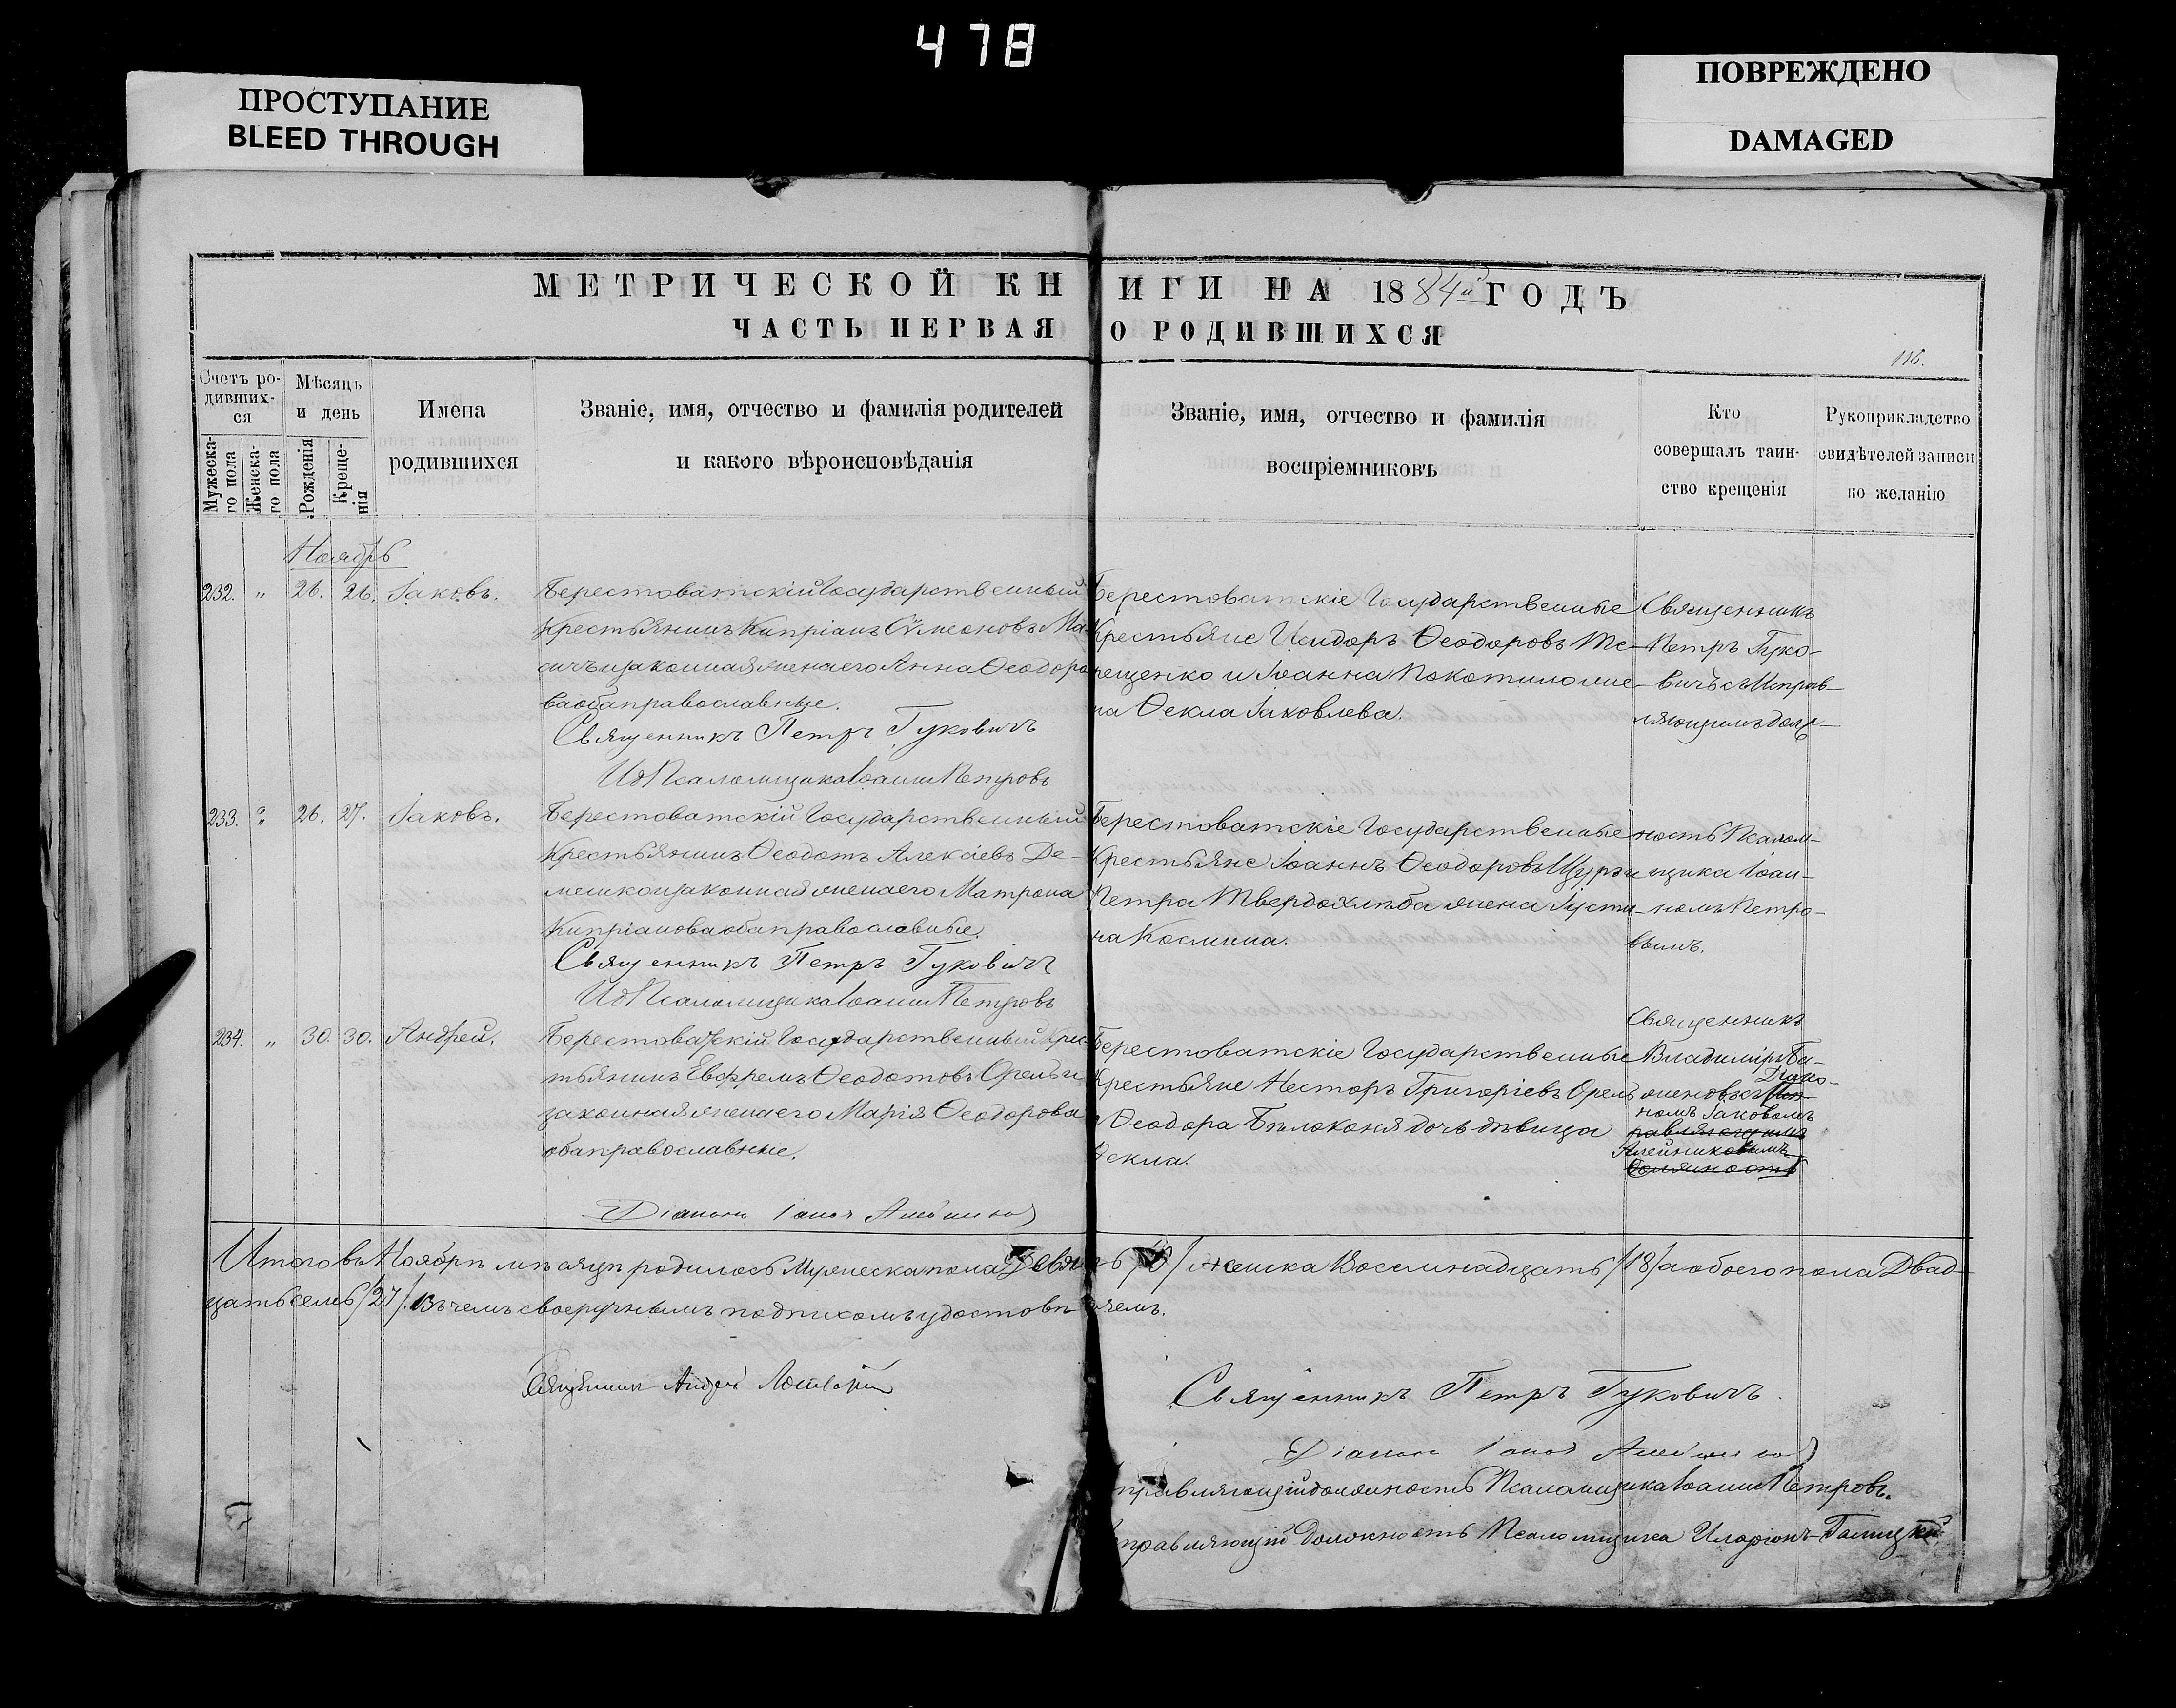 478
ПРОСТУПАНИЕ
BLEED THROUGH
ПОВРЕЖДЕНО
DAMAGED
МЕТРИЧЕСКОЙ КНИГИ НА 1884й ГОДЪ
ЧАСТЬ ПЕРВАЯ О РОДИВШИХСЯ
116.
Счетъ ро-
дивших-
ся
Мужеска-
го пола
Женска-
го пола
Мѣсяцъ
и день
Рожденія
Креще-
нія
Имена
родившихся
Званіе, имя, отчество и фамилія родителей
и какого вѣроисповѣданія
Званіе, имя, отчество и фамилія
воспріемниковъ
Кто
совершалъ таин-
ство крещенія
Рукоприкладство
свидѣтелей записи
по желанію
Ноябрь
232. " 26. 26. Іаковъ.
Берестоватскій Государственный
Крестьянинъ Кипріанъ Сѵмеоновъ Ма-
сичъ и законная жена его Анна Ѳеодоро
ва оба православные.
Священникъ Петръ Гуковичъ
И д Псаломщика Іоаннъ Петровъ
Берестоватскіе Государственные
Крестьяне Исидоръ Ѳеодоровъ Те-
рещенко и Іоанна Покотило же-
на Ѳекла Іаковлева.
Священникъ
Петръ Гуко-
вичъ съ Исправ-
ляющимъ долж-
233. " 26. 27. Іаковъ.
Берестоватскій Государственный
Крестьянинъ Ѳеодотъ Алексіевъ Де-
менко и законная жена его Матрона
Кипріанова оба православные.
Священникъ Петръ Гуковичъ
И д Псаломщика Іоаннъ Петровъ
Берестоватскіе Государственные
Крестьяне Іоаннъ Ѳеодоровъ и
Петра Твердохлѣба жена Іусти-
на Космина.
ность Псалом-
щика Іоан-
номъ Петро-
вымъ.
234. " 30. 30. Андрей.
Берестоватскій Государственный Крес-
тьянинъ Евфремъ Ѳеодотовъ Орелъ и
законная жена его Марія Ѳеодорова
оба православные.
Діаконъ Іаковъ Алейников
Берестоватскіе Государственные
Крестьяне Несторъ Григоріевъ Орелъ
и Ѳеодора Бѣлоконя дочь дѣвица
Ѳекла.
Священникъ
Владиміръ Ба-
женовъ съ Діако-
номъ Іаковомъ
равляющимъ
Алейниковымъ
должность
Итого въ Ноябрѣ мѣсяцѣ родилось Мужеска пола Девять /9/ женска Восемнадцать /18/ а обоего пола Двад-
цать семь /27/. Въ чемъ своеручнымъ подписомъ удостовѣряемъ.
Священникъ Андрей
Священникъ Петръ Гуковичъ.
Діаконъ Іаковъ Алейников
правляющій должность Псаломщика Іоаннъ Петровъ.
правляющій должность Псаломщика Иларіонъ Галицкій